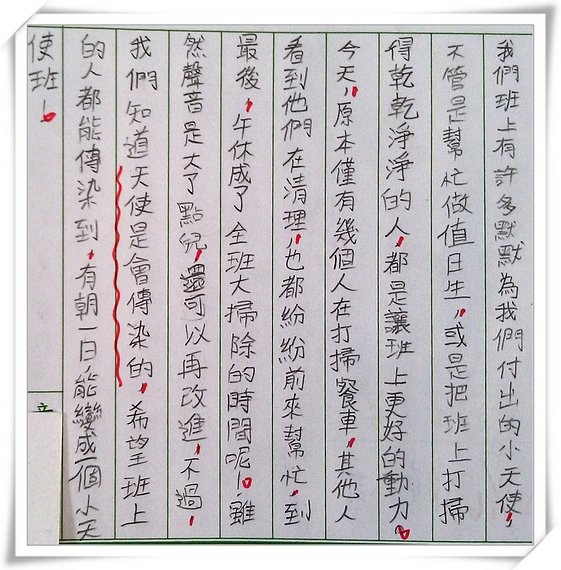 我們班上有許多默默為我們付出的小天使，
不管是幫忙做值日生，或是把班上打掃
得乾乾淨淨的人，都是讓班上更好的動力。
今天，原本僅有幾個人在打掃餐車，其他人
看到他們在清理，也都紛紛前來幫忙，到
最後，午休成了全班大掃除的時間呢！雖
然聲音是大了點兒，還可以再改進，不過，
我們知道天使是會傳染的，希望班上
的人都能傳染到，有朝一日，能變成一個小天
使班！